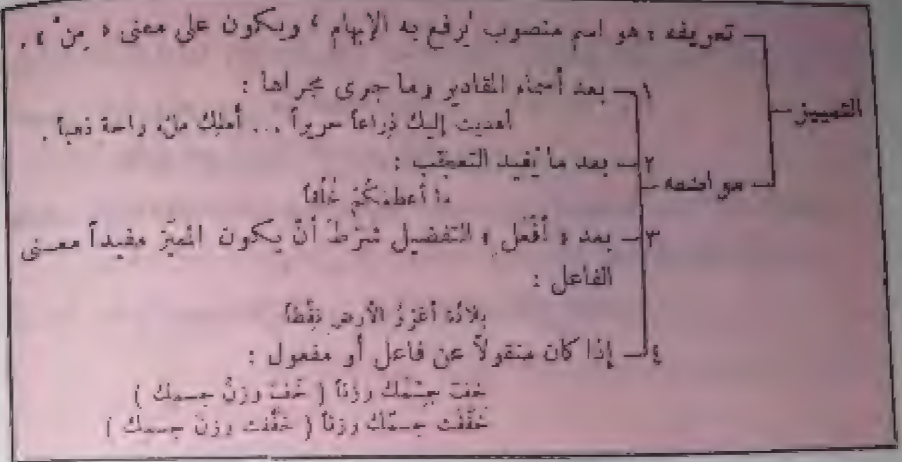 التمييز
تعريفه : هو اسم منصوب يُرفع به الإبهام ، ويكون على معنى « مِنْ » .
مواضعه
١ – بعد أسماء المقادير وما جرى مجراها :
أهديت إليك ذِراعاً حريراً ... أملِك ملء راحة ذهباً .
٢ – بعد ما يُفيد التعجّب :
ما أعظمَكُمْ خُلُقاً
٣ – بعد « أفْعَل » التفضيل شرْطَ أنْ يكون المميّز مفيداً معنى
الفاعل :
بِلادُهُ أغْزَرُ الأرضِ نِفْطاً
٤ – إذا كان منقولاً عن فاعل أو مفعول :
خفّ جِسْمُك وزناً ( خَفّ وزنُ جسمِك )
خَفَّفْت جسمَك وزناً ( خَفَّفْت وزنَ جسمِك )